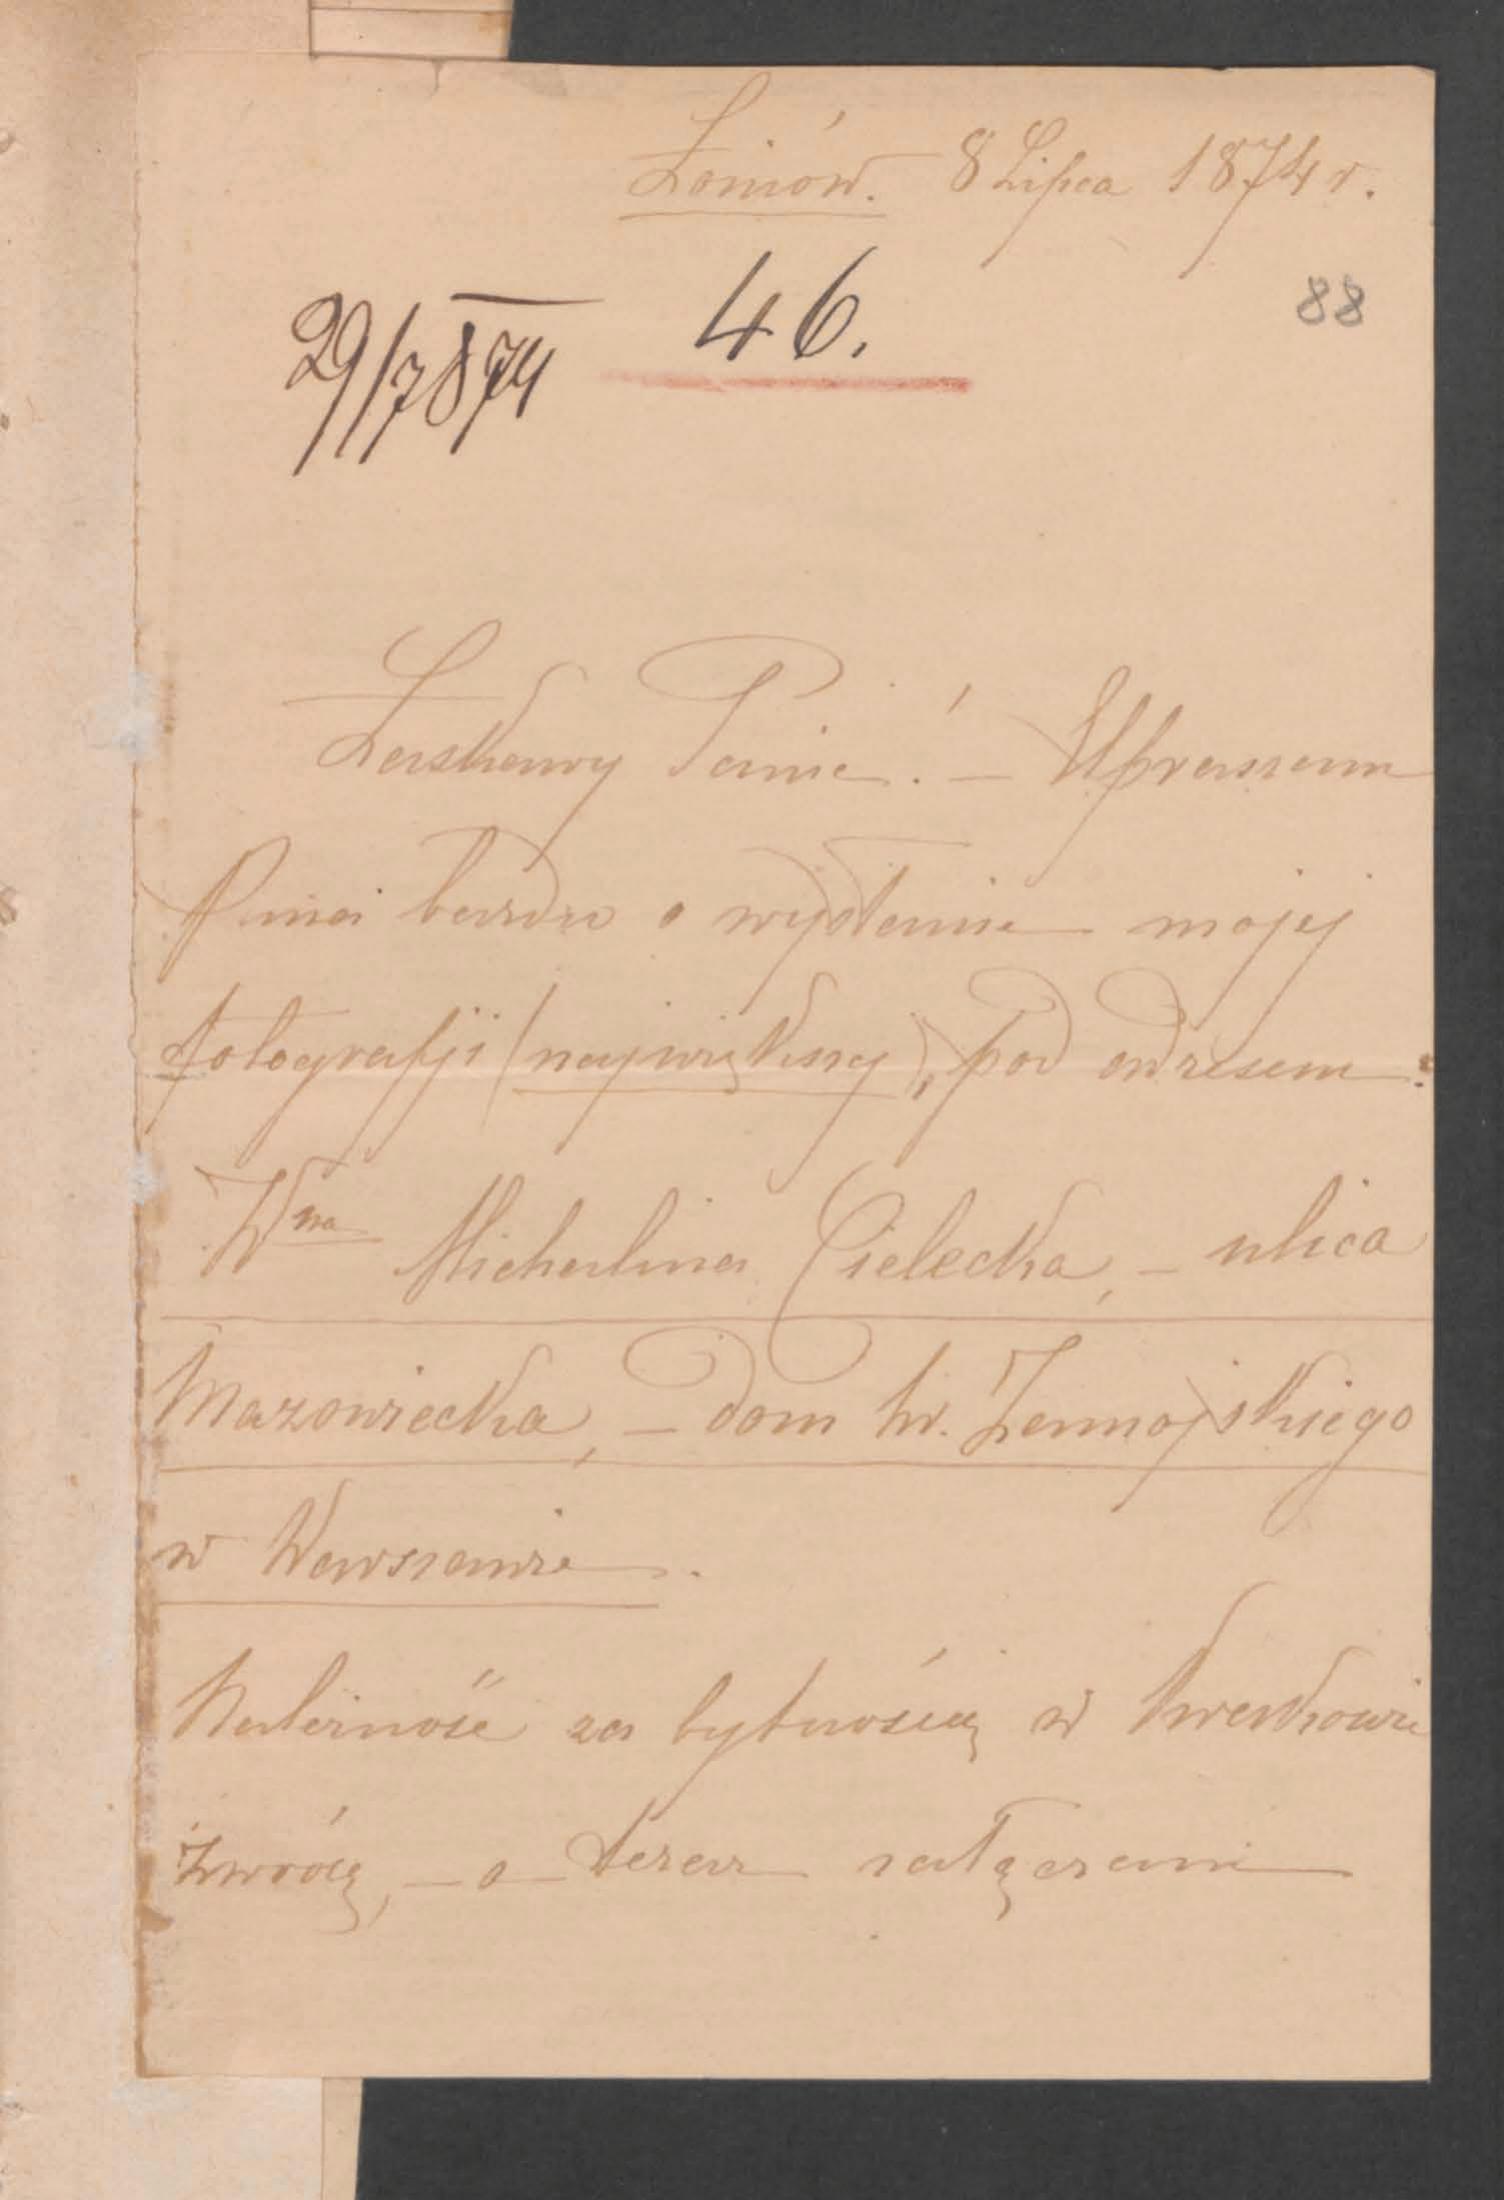 Łoniów. 8 Lipca 1874 r.
46.
88
29/7 874
Łaskawy Panie! — Upraszam
Pana bardzo o wysłanie mojej
fotografji (największej), pod adresem:
Wna Michalina Cielecka, — ulica
Mazowiecka, — dom hr. Zamojskiego
w Warszawie.
Należność za bytnością w Krakowie
zwrócę, — a teraz załączam